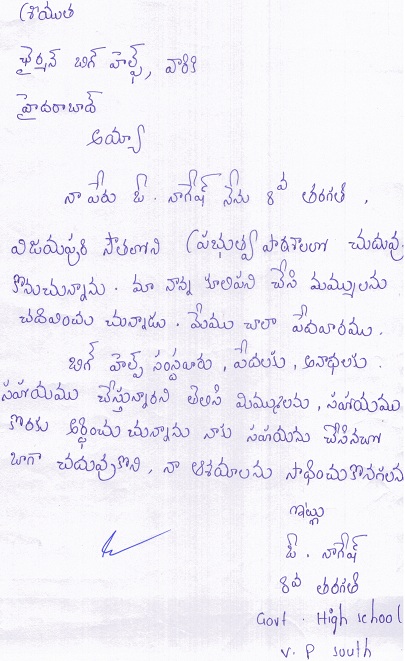 శ్రీయుత
ఛైర్మన్ బిగ్ హెల్ప్, వారికి
హైదరాబాద్
అయ్యా
నా పేరు ఓ. నాగేష్ నేను 8వ తరగతి .
విజయపురి సౌత్‌లోని ప్రభుత్వ పాఠశాలలో చదువు
కొనుచున్నాను. మా నాన్న కూలిపని చేసి మమ్ములను
చదివించు చున్నాడు. మేము చాలా పేదవారము.
బిగ్ హెల్ప్ సంస్థవారు, పేదలకు, అనాథలకు.
సహాయము చేస్తున్నారని తెలిసి మిమ్ములను, సహాయము
కొరకు అర్థించు చున్నాను నాకు సహాయము చేసినచో
బాగా చదువుకొని, నా ఆశయాలను సాధించుకొనగలను
ఇట్లు
ఓ. నాగేష్
8వ తరగతి
Govt. High school
V. P South